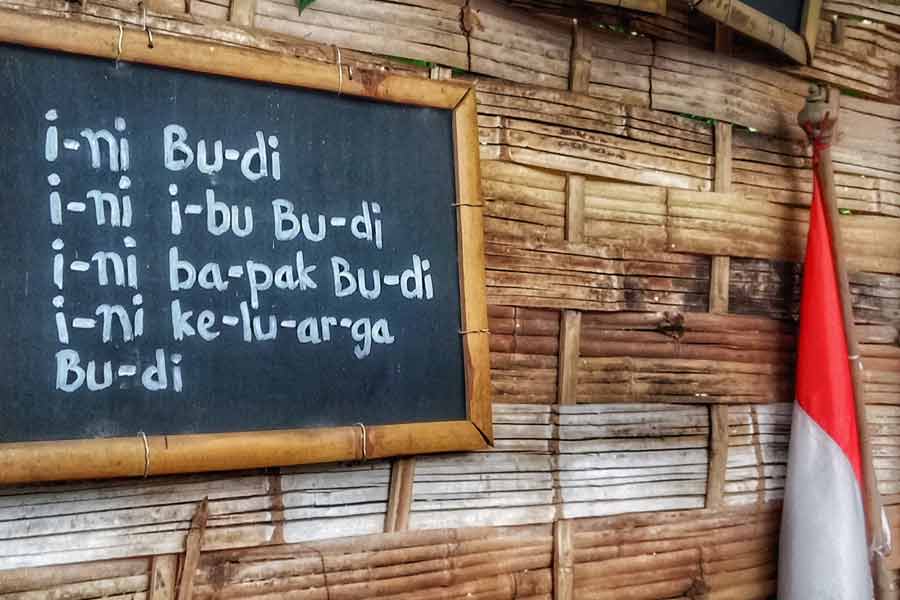 i-ni Bu-di
i-ni i-bu Bu-di
i-ni ba-pak Bu-di
i-ni ke-lu-ar-ga
Bu-di